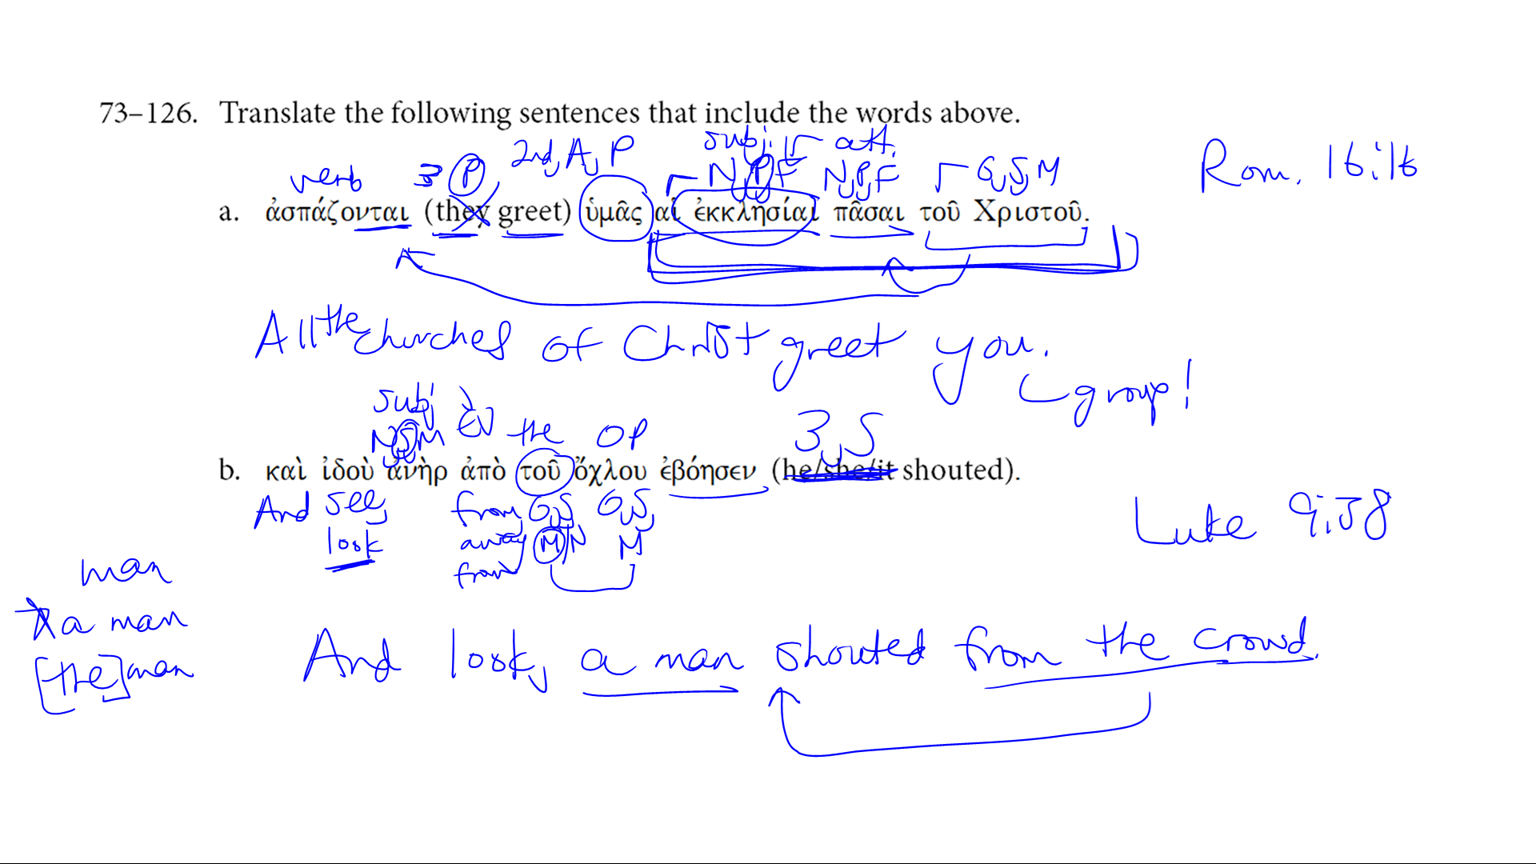 73–126. Translate the following sentences that include the words above.
verb 3 P 2nd, A, P subj. N, P, F att. N, P, F G, S, M Rom. 16:16
a. ἀσπάζονται (they greet) ὑμᾶς αἱ ἐκκλησίαι πᾶσαι τοῦ Χριστοῦ.
All the churches of Christ greet you.
group!
subj the OP 3, S
N, S, M
b. καὶ ἰδοὺ ἀνὴρ ἀπὸ τοῦ ὄχλου ἐβόησεν (he/she/it shouted).
And see, from G, S, G, S, Luke 9:38
look away M N M
man from
a man
[the] man
And look, a man shouted from the crowd.